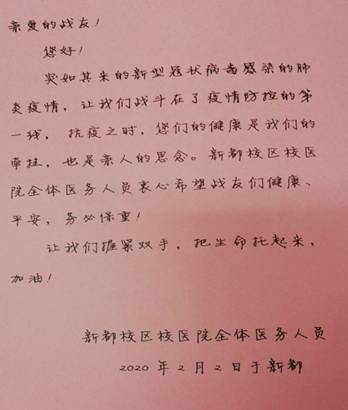 亲爱的战友！
您好！
突如其来的新型冠状病毒感染的肺
炎疫情，让我们战斗在了疫情防控的第
一线，抗疫之时，您们的健康是我们的
牵挂，也是亲人的思念。新都校区校医
院全体医务人员衷心希望战友们健康、
平安，务必保重！
让我们握紧双手，把生命托起来，
加油！
新都校区校医院全体医务人员
2020年2月2日于新都